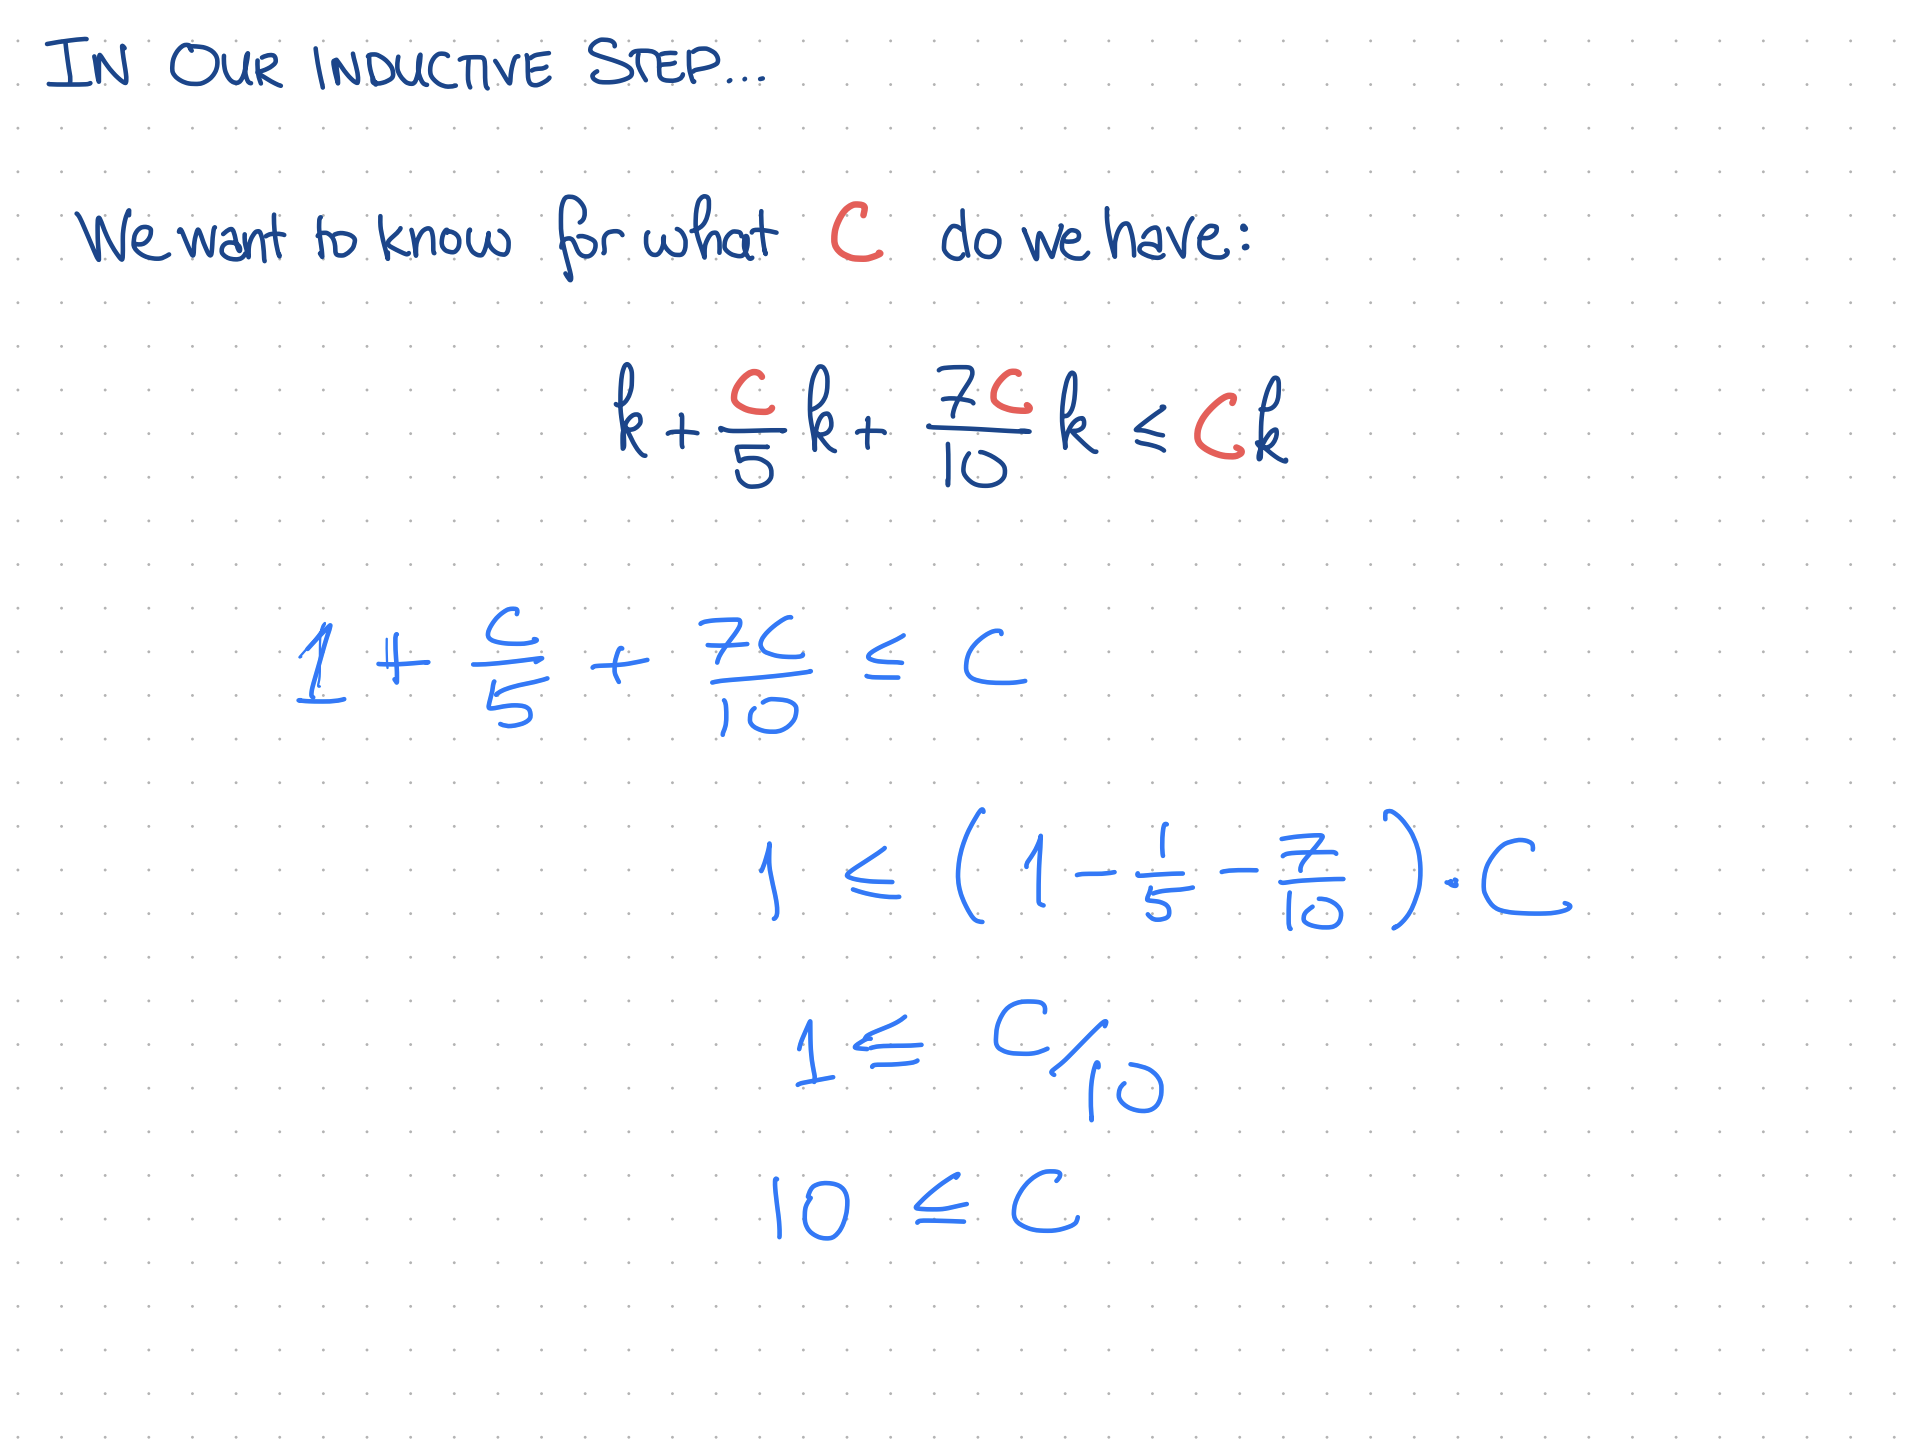 IN OUR INDUCTIVE STEP...
We want to know for what C do we have:
k + C/5 k + 7C/10 k ≤ Ck
1 + C/5 + 7C/10 ≤ C
1 ≤ (1 - 1/5 - 7/10) · C
1 ≤ C/10
10 ≤ C